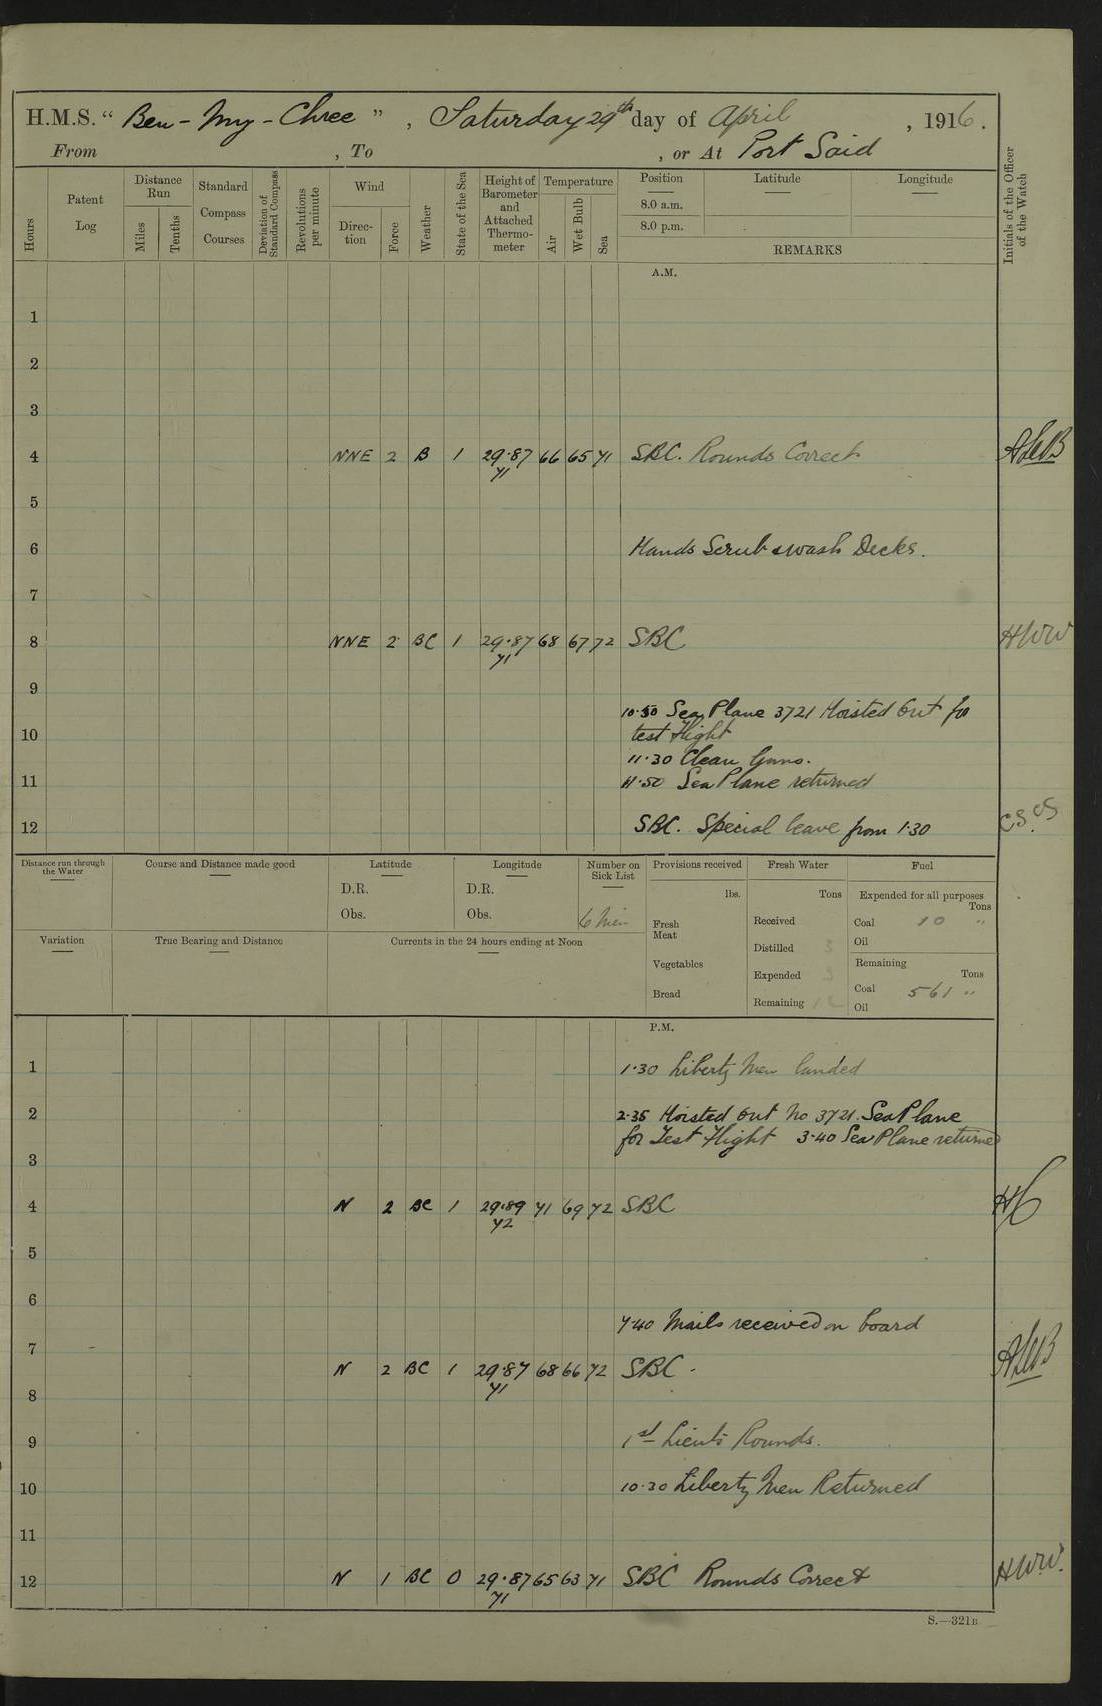 H.M.S. “ Ben-My-Chree ” , Saturday 29th day of April , 1916.
From , To , or At Port Said
Hours
Patent Log
Distance Run
Miles
Tenths
Standard Compass Courses
Deviation of Standard Compass
Revolutions per minute
Wind
Direction
Force
Weather
State of the Sea
Height of Barometer and Attached Thermometer
Temperature
Air
Wet Bulb
Sea
Position
Latitude
Longitude
8.0 a.m.
8.0 p.m.
REMARKS
Initials of the Officer of the Watch
A.M.
1
2
3
4 NNE 2 B 1 29.87 66 65 71 SBC. Rounds Correct
71
5
6 Hands Scrub & wash Decks.
7
8 NNE 2 BC 1 29.87 68 67 72 SBC HWW
71
9
10.50 Sea Plane 3721 Hoisted Out for
10 test Flight
11.30 Clean Guns.
11 11.50 Sea Plane returned
12 SBC. Special leave from 1.30
Distance run through the Water
Course and Distance made good
Latitude
D.R.
Obs.
Longitude
D.R.
Obs.
Number on Sick List
6 Men
Provisions received
lbs.
Fresh Meat
Vegetables
Bread
Fresh Water
Tons
Received
Distilled 3
Expended 3
Remaining 12
Fuel
Expended for all purposes
Tons
Coal 10 "
Oil
Remaining
Tons
Coal 561 "
Oil
Variation
True Bearing and Distance
Currents in the 24 hours ending at Noon
P.M.
1 1.30 Liberty Men landed
2 2.35 Hoisted Out No 3721 Sea Plane
for Test Flight 3.40 Sea Plane returned
3
4 N 2 BC 1 29.89 71 69 72 SBC
72
5
6
7.40 Mails received on board
7
N 2 BC 1 29.87 68 66 72 SBC.
71
8
9 1st Lieuts Rounds.
10 10.30 Liberty Men Returned
11
12 N 1 BC 0 29.87 65 63 71 SBC Rounds Correct HWW.
71
S.—321B